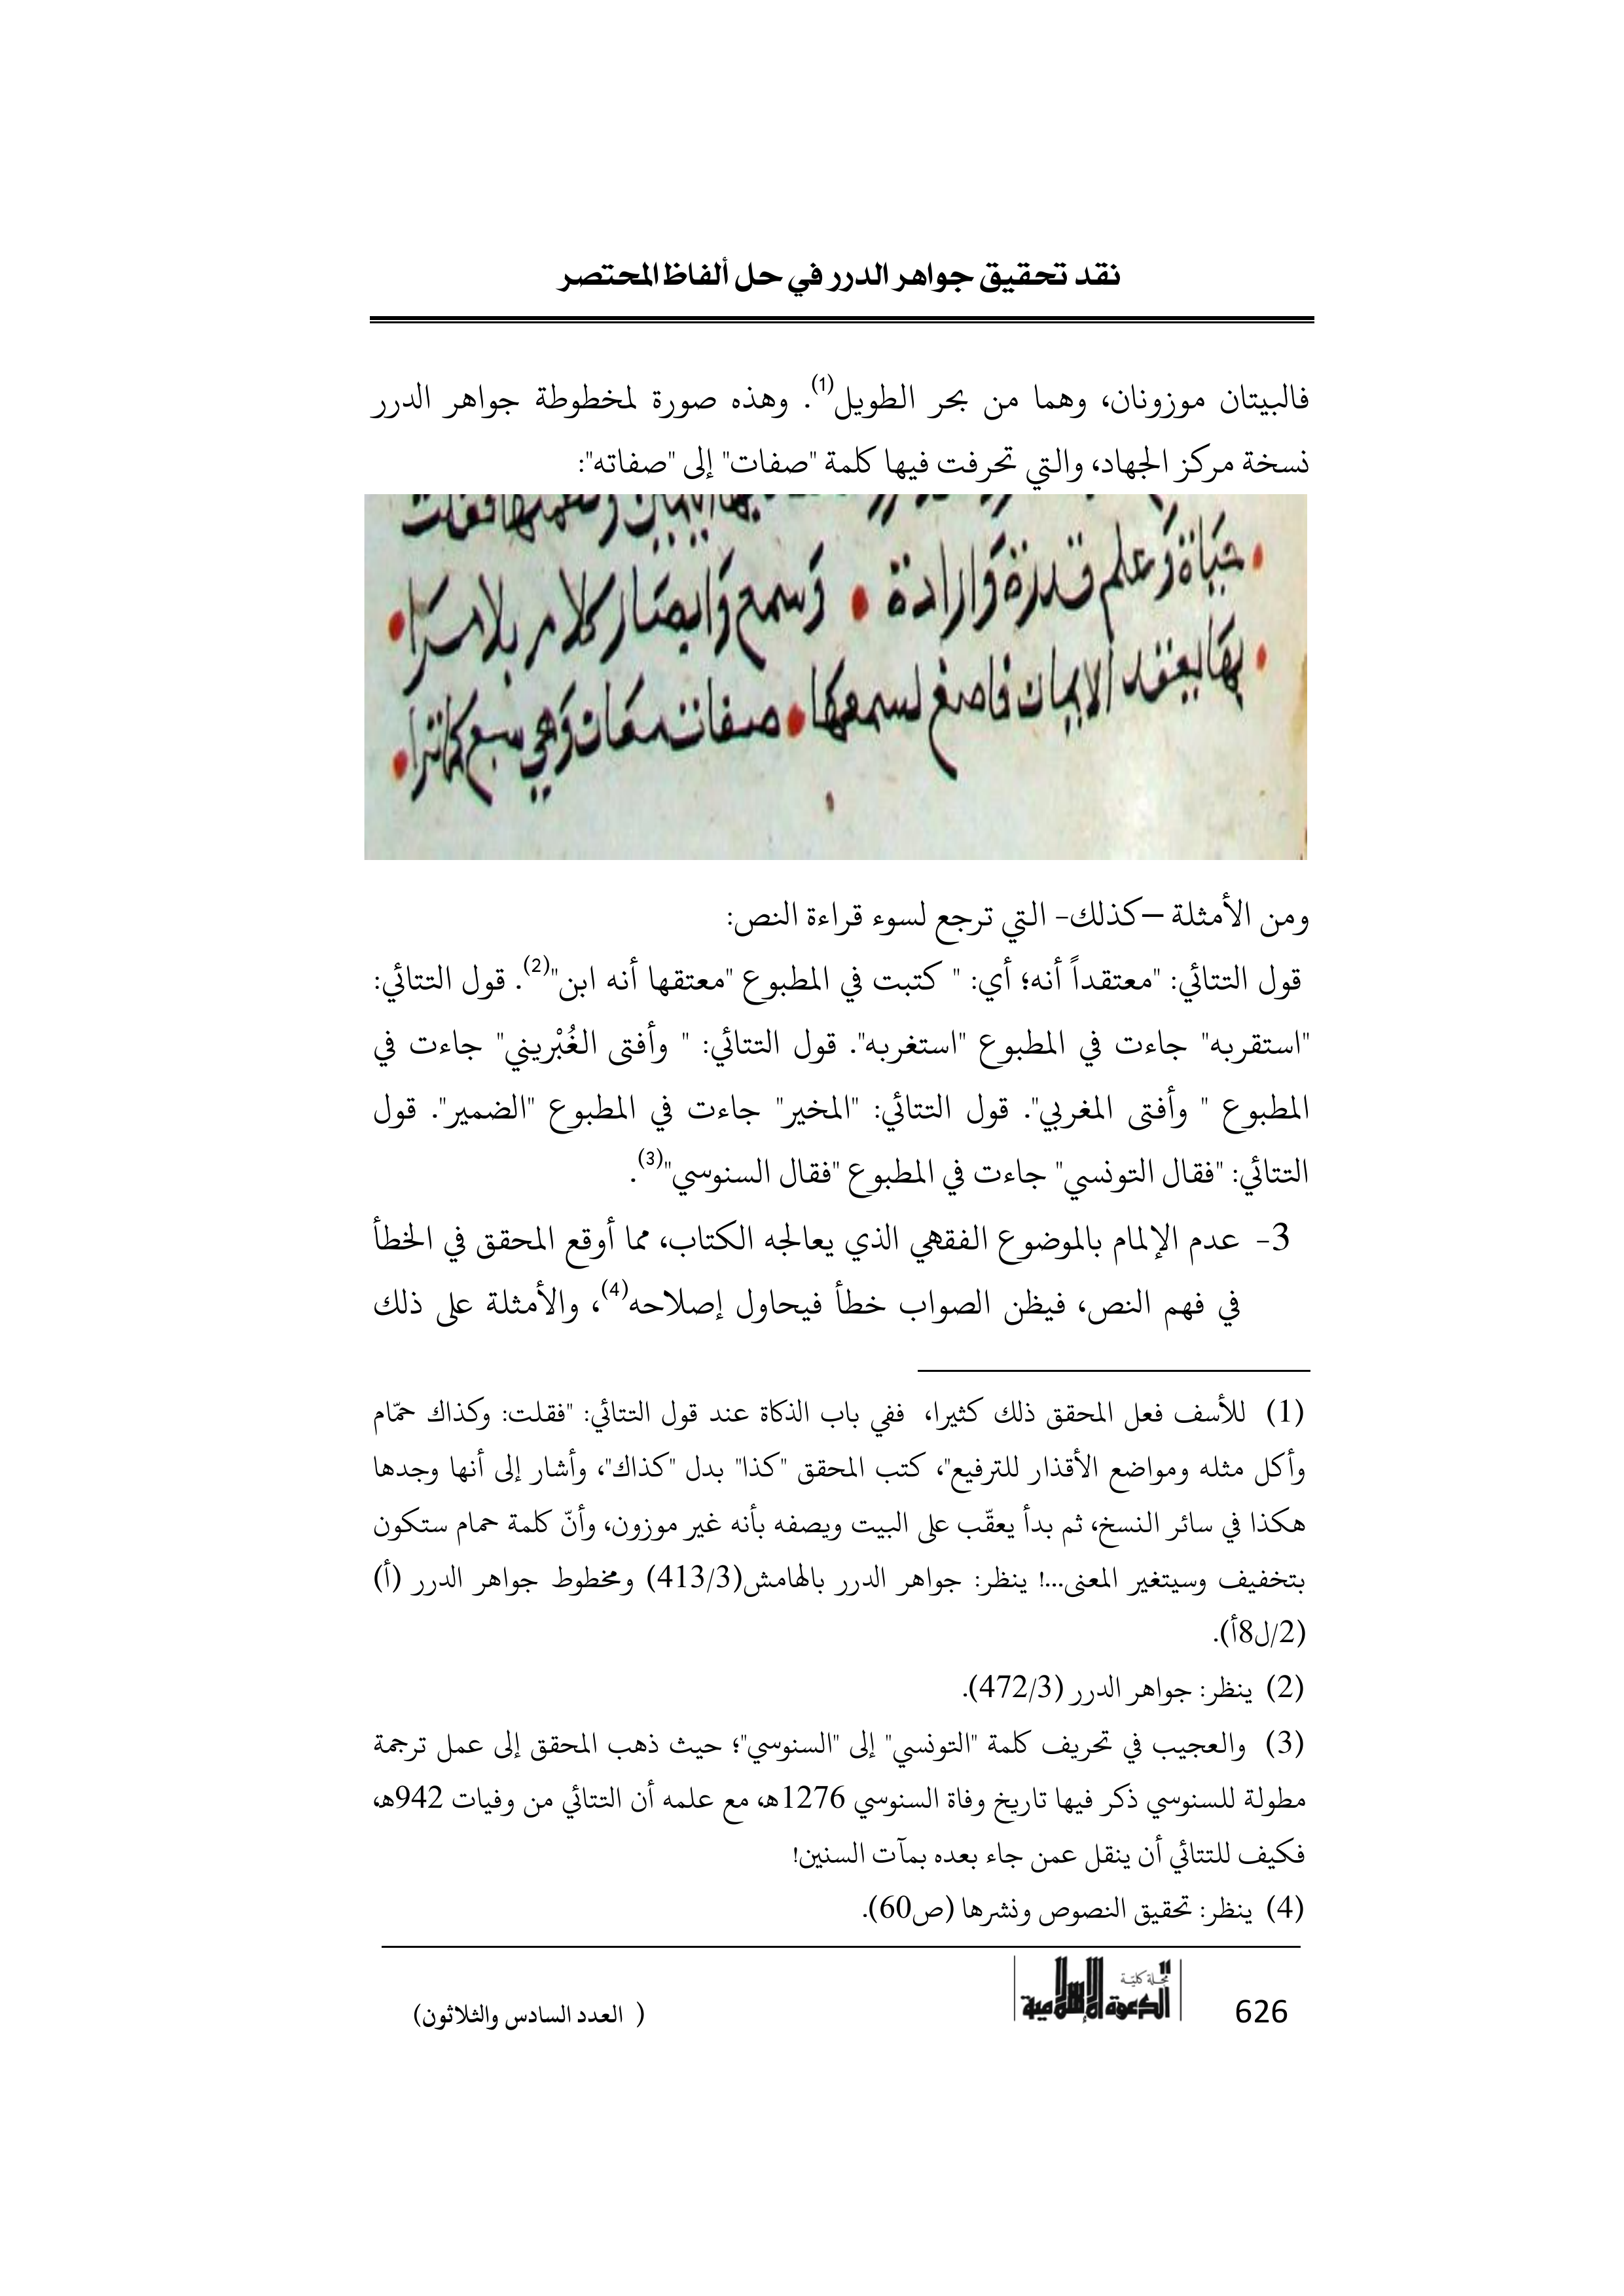 نقد تحقيق جواهر الدرر في حل ألفاظ المحتصر
فالبيتان موزونان، وهما من بحر الطويل(1). وهذه صورة لمخطوطة جواهر الدرر
نسخة مركز الجهاد، والتي تحرفت فيها كلمة "صفات" إلى "صفاته":
حياة وعلم قدرة وارادة • وسمع وابصار كلام بلا مرا
بها يعتقد الايمان فاصغ لسمعها • صفات معان وهي سبع كما ترا
ومن الأمثلة –كذلك- التي ترجع لسوء قراءة النص:
قول التتائي: "معتقداً أنه؛ أي: " كتبت في المطبوع "معتقها أنه ابن"(2). قول التتائي:
"استقربه" جاءت في المطبوع "استغربه". قول التتائي: " وأفتى الغُبْريني" جاءت في
المطبوع " وأفتى المغربي". قول التتائي: "المخير" جاءت في المطبوع "الضمير". قول
التتائي: "فقال التونسي" جاءت في المطبوع "فقال السنوسي"(3).
3- عدم الإلمام بالموضوع الفقهي الذي يعالجه الكتاب، مما أوقع المحقق في الخطأ
في فهم النص، فيظن الصواب خطأ فيحاول إصلاحه(4)، والأمثلة على ذلك
(1) للأسف فعل المحقق ذلك كثيرا، ففي باب الذكاة عند قول التتائي: "فقلت: وكذاك حمّام
وأكل مثله ومواضع الأقذار للترفيع"، كتب المحقق "كذا" بدل "كذاك"، وأشار إلى أنها وجدها
هكذا في سائر النسخ، ثم بدأ يعقّب على البيت ويصفه بأنه غير موزون، وأنّ كلمة حمام ستكون
بتخفيف وسيتغير المعنى...! ينظر: جواهر الدرر بالهامش(413/3) ومخطوط جواهر الدرر (أ)
(2/ل8أ).
(2) ينظر: جواهر الدرر (472/3).
(3) والعجيب في تحريف كلمة "التونسي" إلى "السنوسي"؛ حيث ذهب المحقق إلى عمل ترجمة
مطولة للسنوسي ذكر فيها تاريخ وفاة السنوسي 1276ه، مع علمه أن التتائي من وفيات 942ه،
فكيف للتتائي أن ينقل عمن جاء بعده بمآت السنين!
(4) ينظر: تحقيق النصوص ونشرها (ص60).
626 مجلة كلية الدعوة الإسلامية ( العدد السادس والثلاثون)